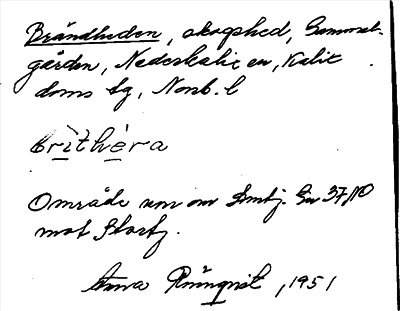 Brändheden, skogshed, Gammel-
gården, Nederkalix sn, Kalix
doms sg, Norrb. l
brìthéra
Område um om Smtj. Gr 37 NO
mot Stortj.
Anna Rönnqvist, 1951